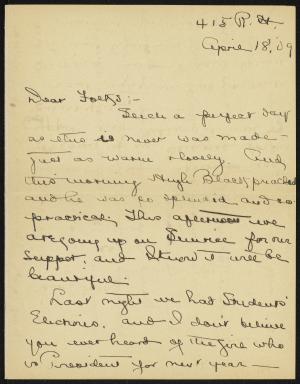 415 R. St.
April 18, 09
Dear Folks:-
Such a perfect day
as this is never was made -
just as warm & lovely. And
this morning Hugh Black preached
and he was so splendid and so
practical. This afternoon we
are going up on Sunrise for our
supper, and I know it will be
beautiful.
Last night we had Students'
Elections, and I don't believe
you ever heard of the girl who
is President for next year -